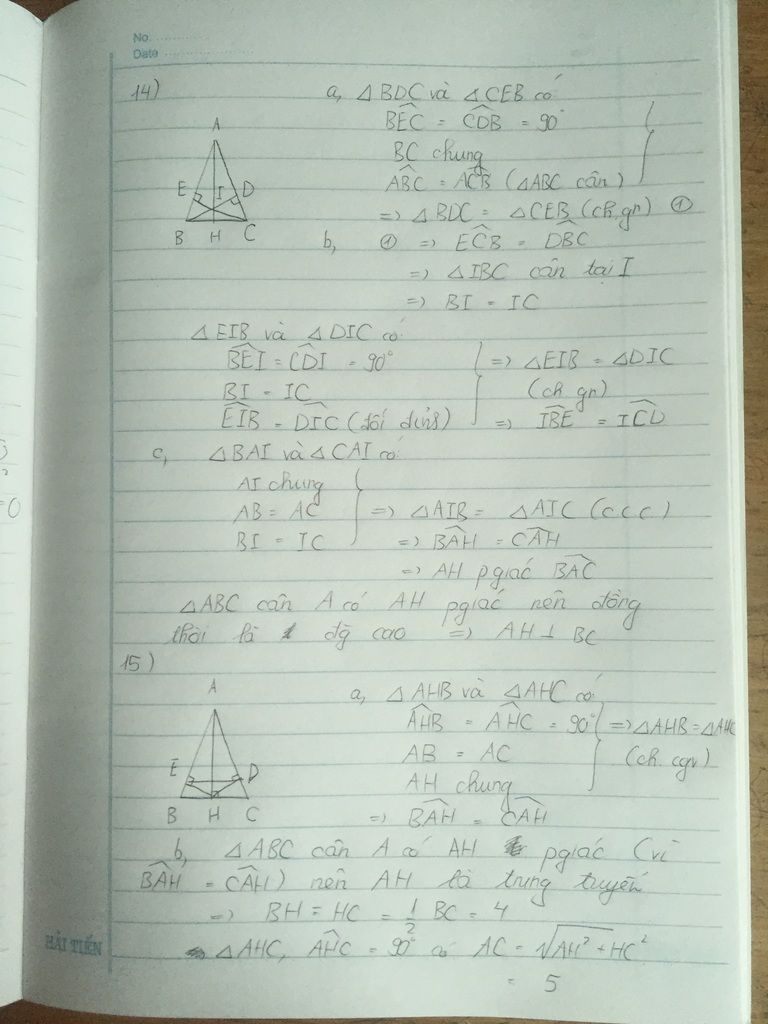 No.
Date
14)
a, △BDC và △CEB có
BEC = CDB = 90°
BC chung
ABC = ACB (△ABC cân)
=> △BDC = △CEB (ch, gn) ①
b, ① => ECB = DBC
=> △IBC cân tại I
=> BI = IC
A
E I D
B H C
△EIB và △DIC có:
BEI = CDI = 90°
BI = IC
EIB = DIC (đối đỉnh)
=> △EIB = △DIC
(ch gn)
=> IBE = ICD
c, △BAI và △CAI có:
AI chung
AB = AC => △AIB = △AIC (c c c)
BI = IC => BAH = CAH
=> AH pgiác BAC
△ABC cân A có AH pgiác nên đồng
thời là đg cao => AH ⊥ BC
15)
a, △AHB và △AHC có:
AHB = AHC = 90° => △AHB = △AHC
AB = AC (ch. cgv)
AH chung
=> BAH = CAH
A
E D
B H C
b, △ABC cân A có AH pgiác (vì
BAH = CAH) nên AH là trung tuyến
=> BH = HC = 1/2 BC = 4
△AHC, AHC = 90° có AC = √AH² + HC²
= 5
HẢI TIẾN